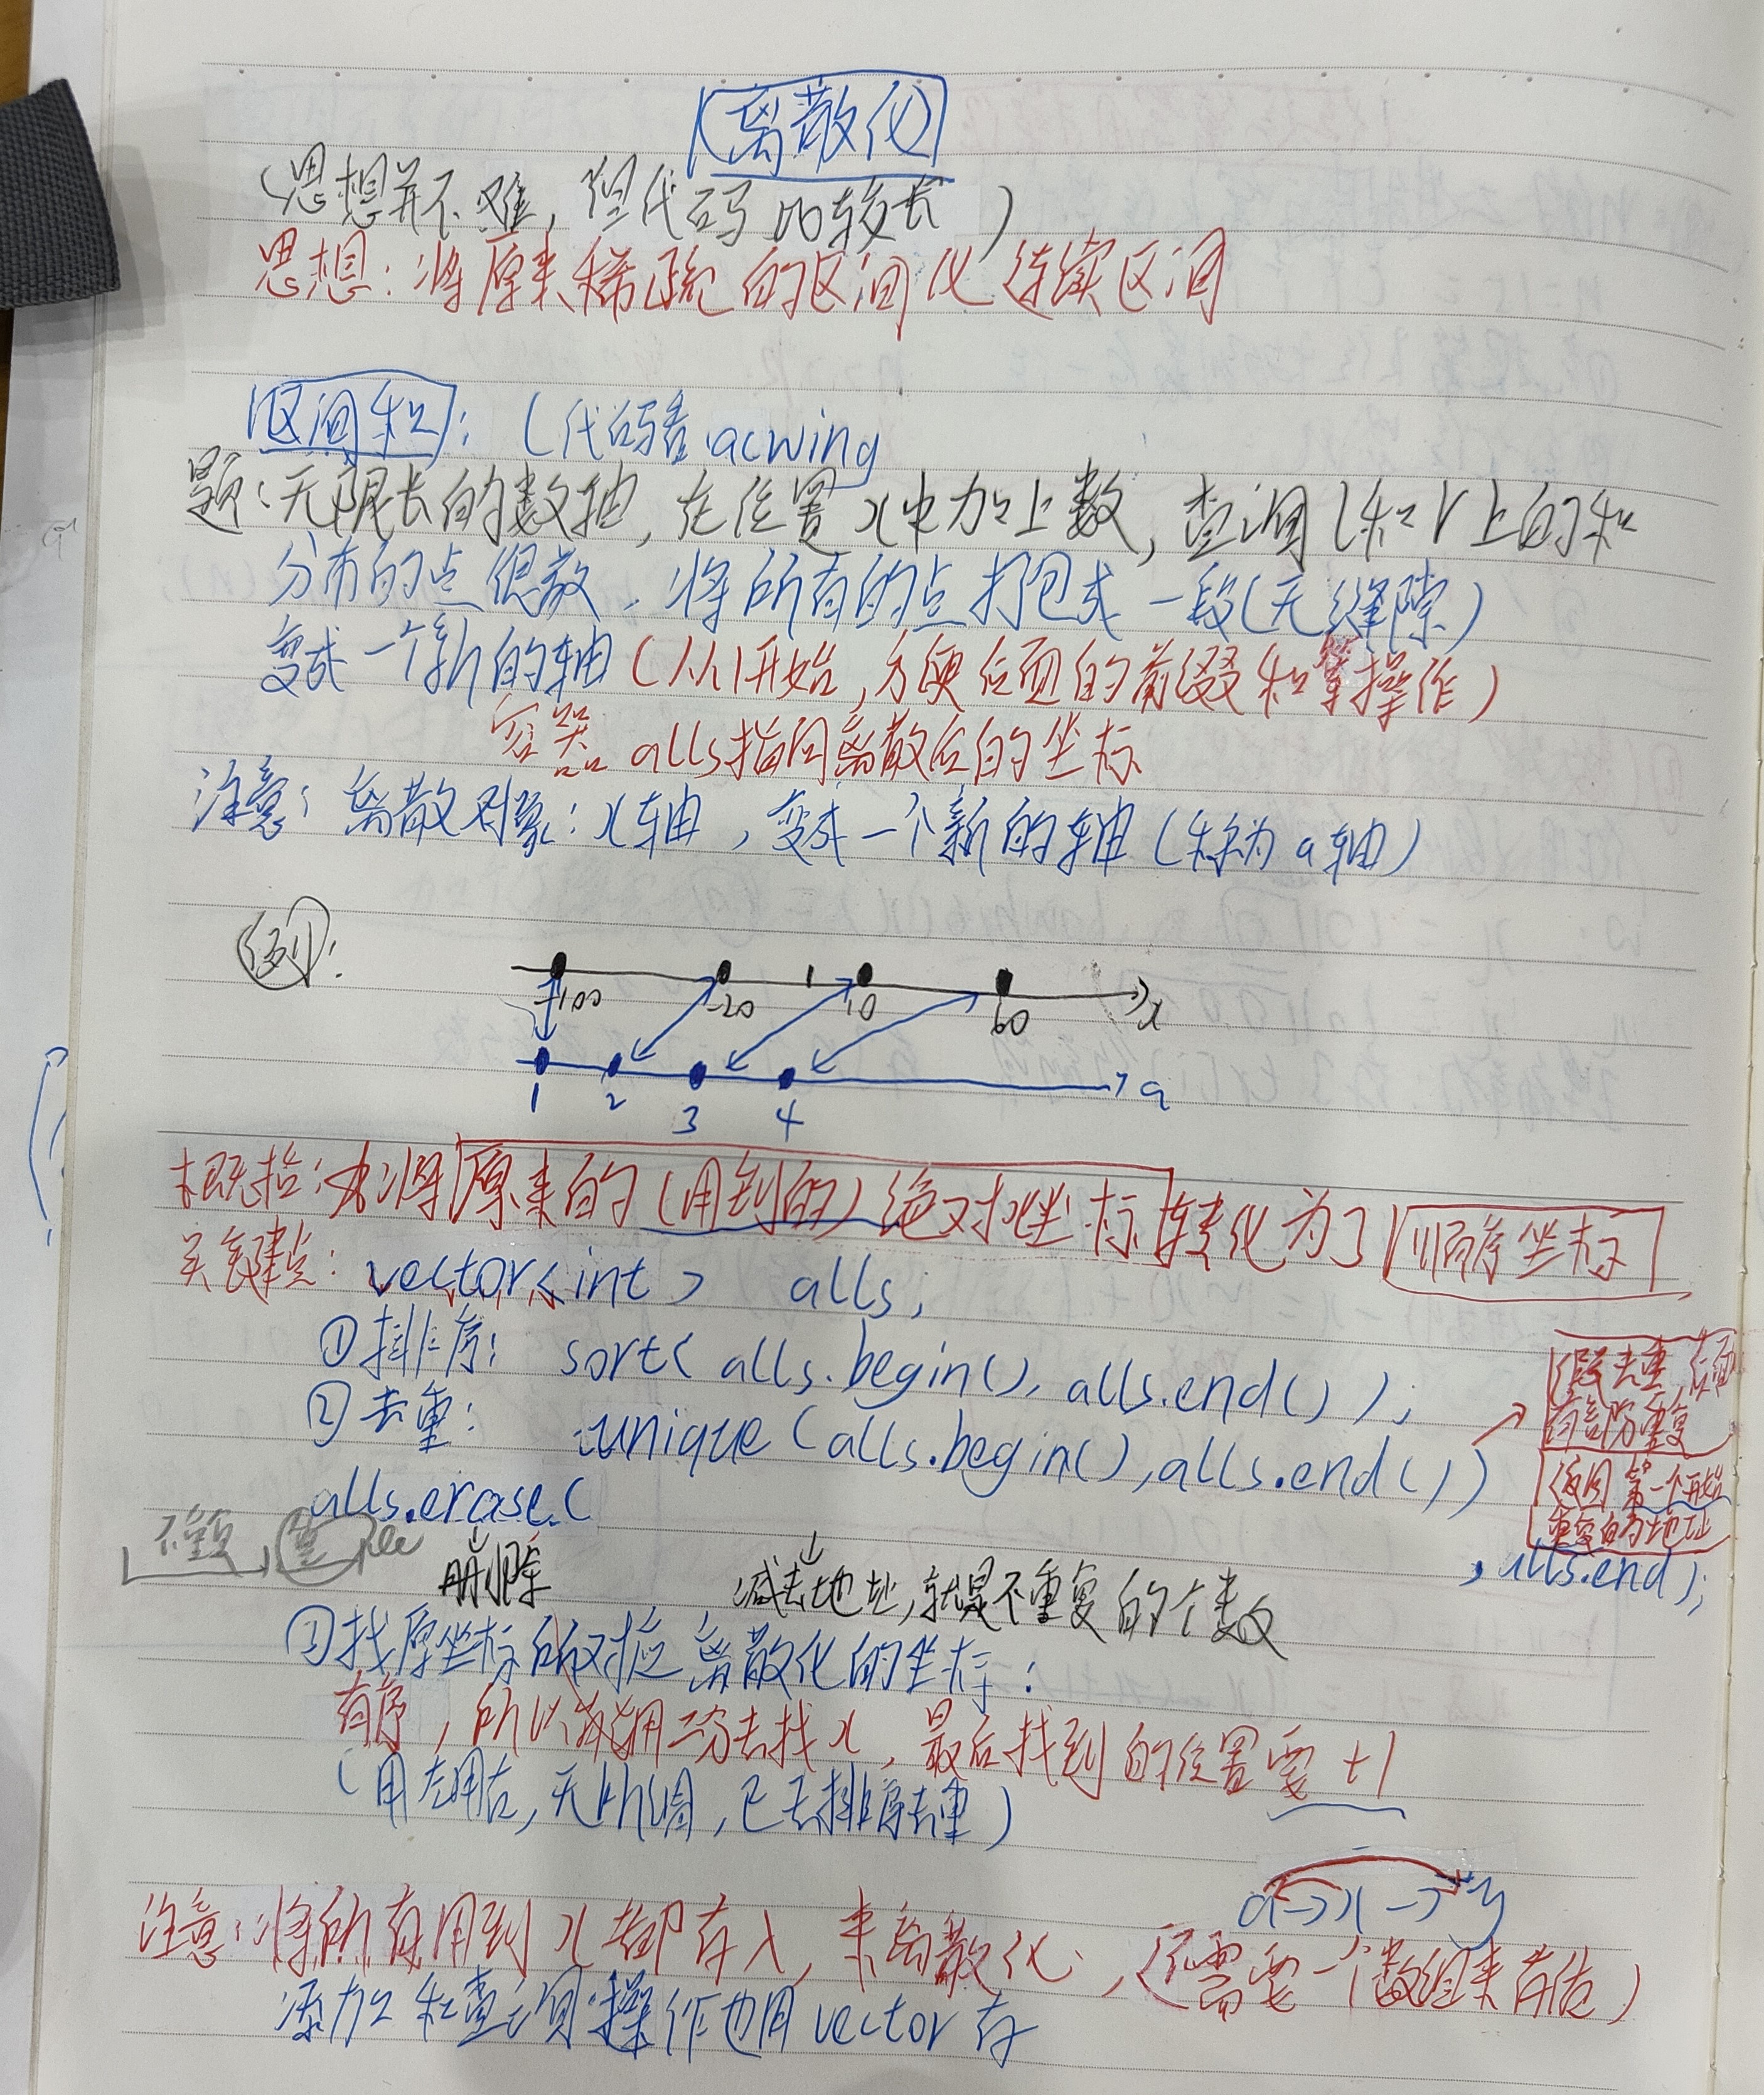 离散化
(思想并不难，但代码比较长)
思想：将原来稀疏的区间化连续区间
区间和：(代码看acwing
题：无限长的数轴，在位置x中加上数，查询l和r上的和
分布的点很散，将所有的点打包成一段(无缝隙)
变成一个新的轴(从1开始，方便后面的前缀和等操作)
容器 alls指向离散后的坐标
注意：离散对象：x轴，变成一个新的轴(称为a轴)
例：
-100 -20 10 60 x
1 2 3 4 a
概括：将原来的(用到的)绝对坐标转化为了顺序坐标
关键点：vector<int> alls;
①排序：sort(alls.begin(), alls.end());
②去重：unique(alls.begin(), alls.end())
假去重，后面
有部分重复
返回第一个开始
重复的地址
alls.erase(
, alls.end);
不重复，重
删除
减去地址，就是不重复的个数
③找原坐标所对应离散化的坐标：
有序，所以用二分去找x，最后找到的位置要+1
(用左用右，无所谓，已去排序去重)
a→x→y
注意：将所有用到x都存入，来离散化，(还需要一个数组来存值)
添加和查询操作也用vector存